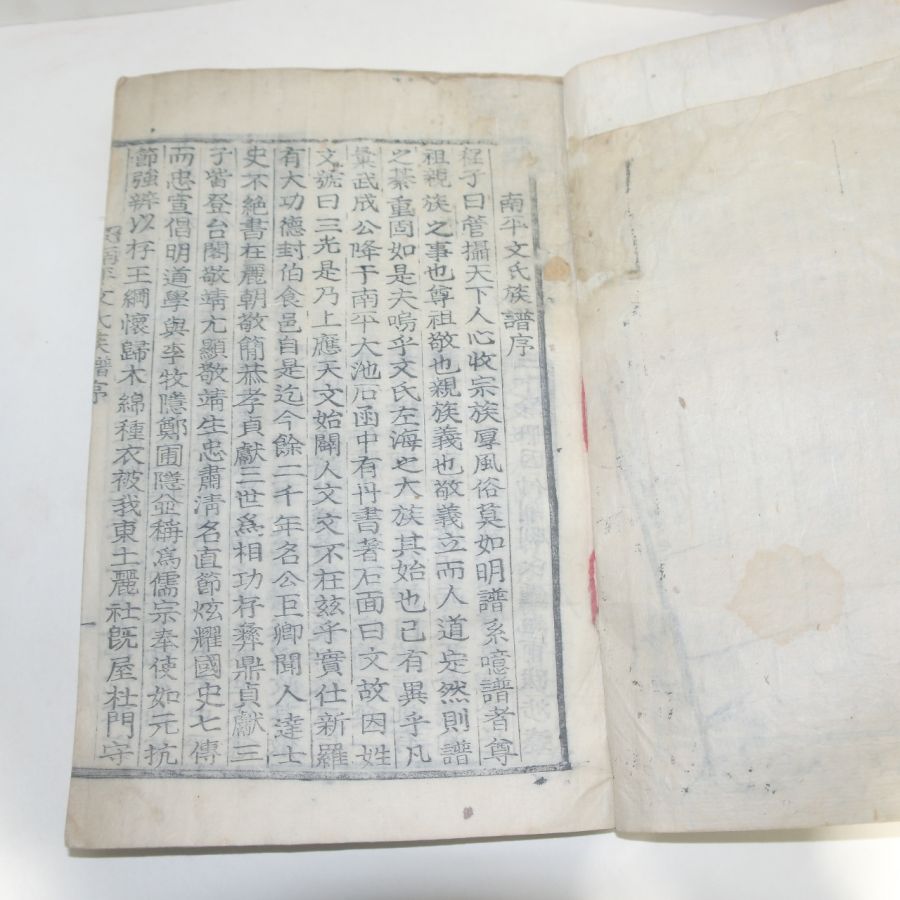 南平文氏族譜序
程子曰管攝天下人心收宗族厚風俗莫如明譜系噫譜者尊
祖親族之事也尊祖敬也親族義也敬義立而人道定然則譜
之綦重固如是夫嗚乎文氏左海之大族其始也已有異乎凡
彙武成公降于南平大池石函中有丹書著石面曰文故因姓
文號曰三光是乃上應天文始闢人文文不在玆乎實仕新羅
有大功德封伯食邑自是迄今餘二千年名公巨卿聞人達士
史不絶書在麗朝敬簡恭孝貞獻三世爲相功存彝鼎貞獻三
子皆登台閣敬靖尤顯敬靖生忠肅淸名直節炫耀國史七傳
而忠宣倡明道學與李牧隱鄭圃隱並稱爲儒宗奉使如元抗
節强辨以存王綱懷歸木綿種衣被我東土麗社旣屋杜門守
南平文氏族譜序
一